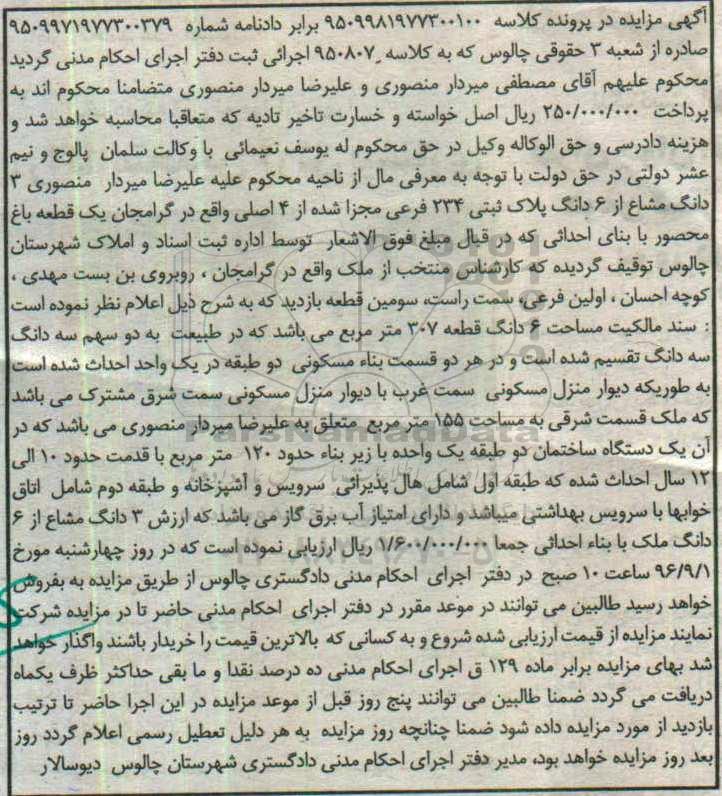 آگهی مزایده در پرونده کلاسه ۹۵۰۹۹۸۱۹۷۷۳۰۰۱۰۰ برابر دادنامه شماره ۹۵۰۹۹۷۱۹۷۷۳۰۰۳۷۹
صادره از شعبه ۳ حقوقی چالوس که به کلاسه ۹۵۰۸۰۷ اجرائی ثبت دفتر اجرای احکام مدنی گردید
محکوم علیهم آقای مصطفی میردار منصوری و علیرضا میردار منصوری متضامنا محکوم اند به
پرداخت ۲۵۰/۰۰۰/۰۰۰ ریال اصل خواسته و خسارت تاخیر تادیه که متعاقبا محاسبه خواهد شد و
هزینه دادرسی و حق الوکاله وکیل در حق محکوم له یوسف نعیمائی با وکالت سلمان پالوج و نیم
عشر دولتی در حق دولت با توجه به معرفی مال از ناحیه محکوم علیه علیرضا میردار منصوری ۳
دانگ مشاع از ۶ دانگ پلاک ثبتی ۲۳۴ فرعی مجزا شده از ۴ اصلی واقع در گرامجان یک قطعه باغ
محصور با بنای احداثی که در قبال مبلغ فوق الاشعار توسط اداره ثبت اسناد و املاک شهرستان
چالوس توقیف گردیده که کارشناس منتخب از ملک واقع در گرامجان ، روبروی بن بست مهدی ،
کوچه احسان ، اولین فرعی، سمت راست، سومین قطعه بازدید که به شرح ذیل اعلام نظر نموده است
: سند مالکیت مساحت ۶ دانگ قطعه ۳۰۷ متر مربع می باشد که در طبیعت به دو سهم سه دانگ
سه دانگ تقسیم شده است و در هر دو قسمت بناء مسکونی دو طبقه در یک واحد احداث شده است
به طوریکه دیوار منزل مسکونی سمت غرب با دیوار منزل مسکونی سمت شرق مشترک می باشد
که ملک قسمت شرقی به مساحت ۱۵۵ متر مربع متعلق به علیرضا میردار منصوری می باشد که در
آن یک دستگاه ساختمان دو طبقه یک واحده با زیر بناء حدود ۱۲۰ متر مربع با قدمت حدود ۱۰ الی
۱۲ سال احداث شده که طبقه اول شامل هال پذیرائی سرویس و آشپزخانه و طبقه دوم شامل اتاق
خوابها با سرویس بهداشتی میباشد و دارای امتیاز آب برق گاز می باشد که ارزش ۳ دانگ مشاع از ۶
دانگ ملک با بناء احداثی جمعا ۱/۶۰۰/۰۰۰/۰۰۰ ریال ارزیابی نموده است که در روز چهارشنبه مورخ
۹۶/۹/۱ ساعت ۱۰ صبح در دفتر اجرای احکام مدنی دادگستری چالوس از طریق مزایده به بفروش
خواهد رسید طالبین می توانند در موعد مقرر در دفتر اجرای احکام مدنی حاضر تا در مزایده شرکت
نمایند مزایده از قیمت ارزیابی شده شروع و به کسانی که بالاترین قیمت را خریدار باشند واگذار خواهد
شد بهای مزایده برابر ماده ۱۲۹ ق اجرای احکام مدنی ده درصد نقدا و ما بقی حداکثر ظرف یکماه
دریافت می گردد ضمنا طالبین می توانند پنج روز قبل از موعد مزایده در این اجرا حاضر تا ترتیب
بازدید از مورد مزایده داده شود ضمنا چنانچه روز مزایده به هر دلیل تعطیل رسمی اعلام گردد روز
بعد روز مزایده خواهد بود، مدیر دفتر اجرای احکام مدنی دادگستری شهرستان چالوس دیوسالار
ParsNamadData